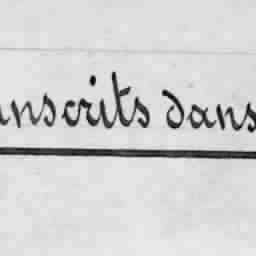 inscrits dans